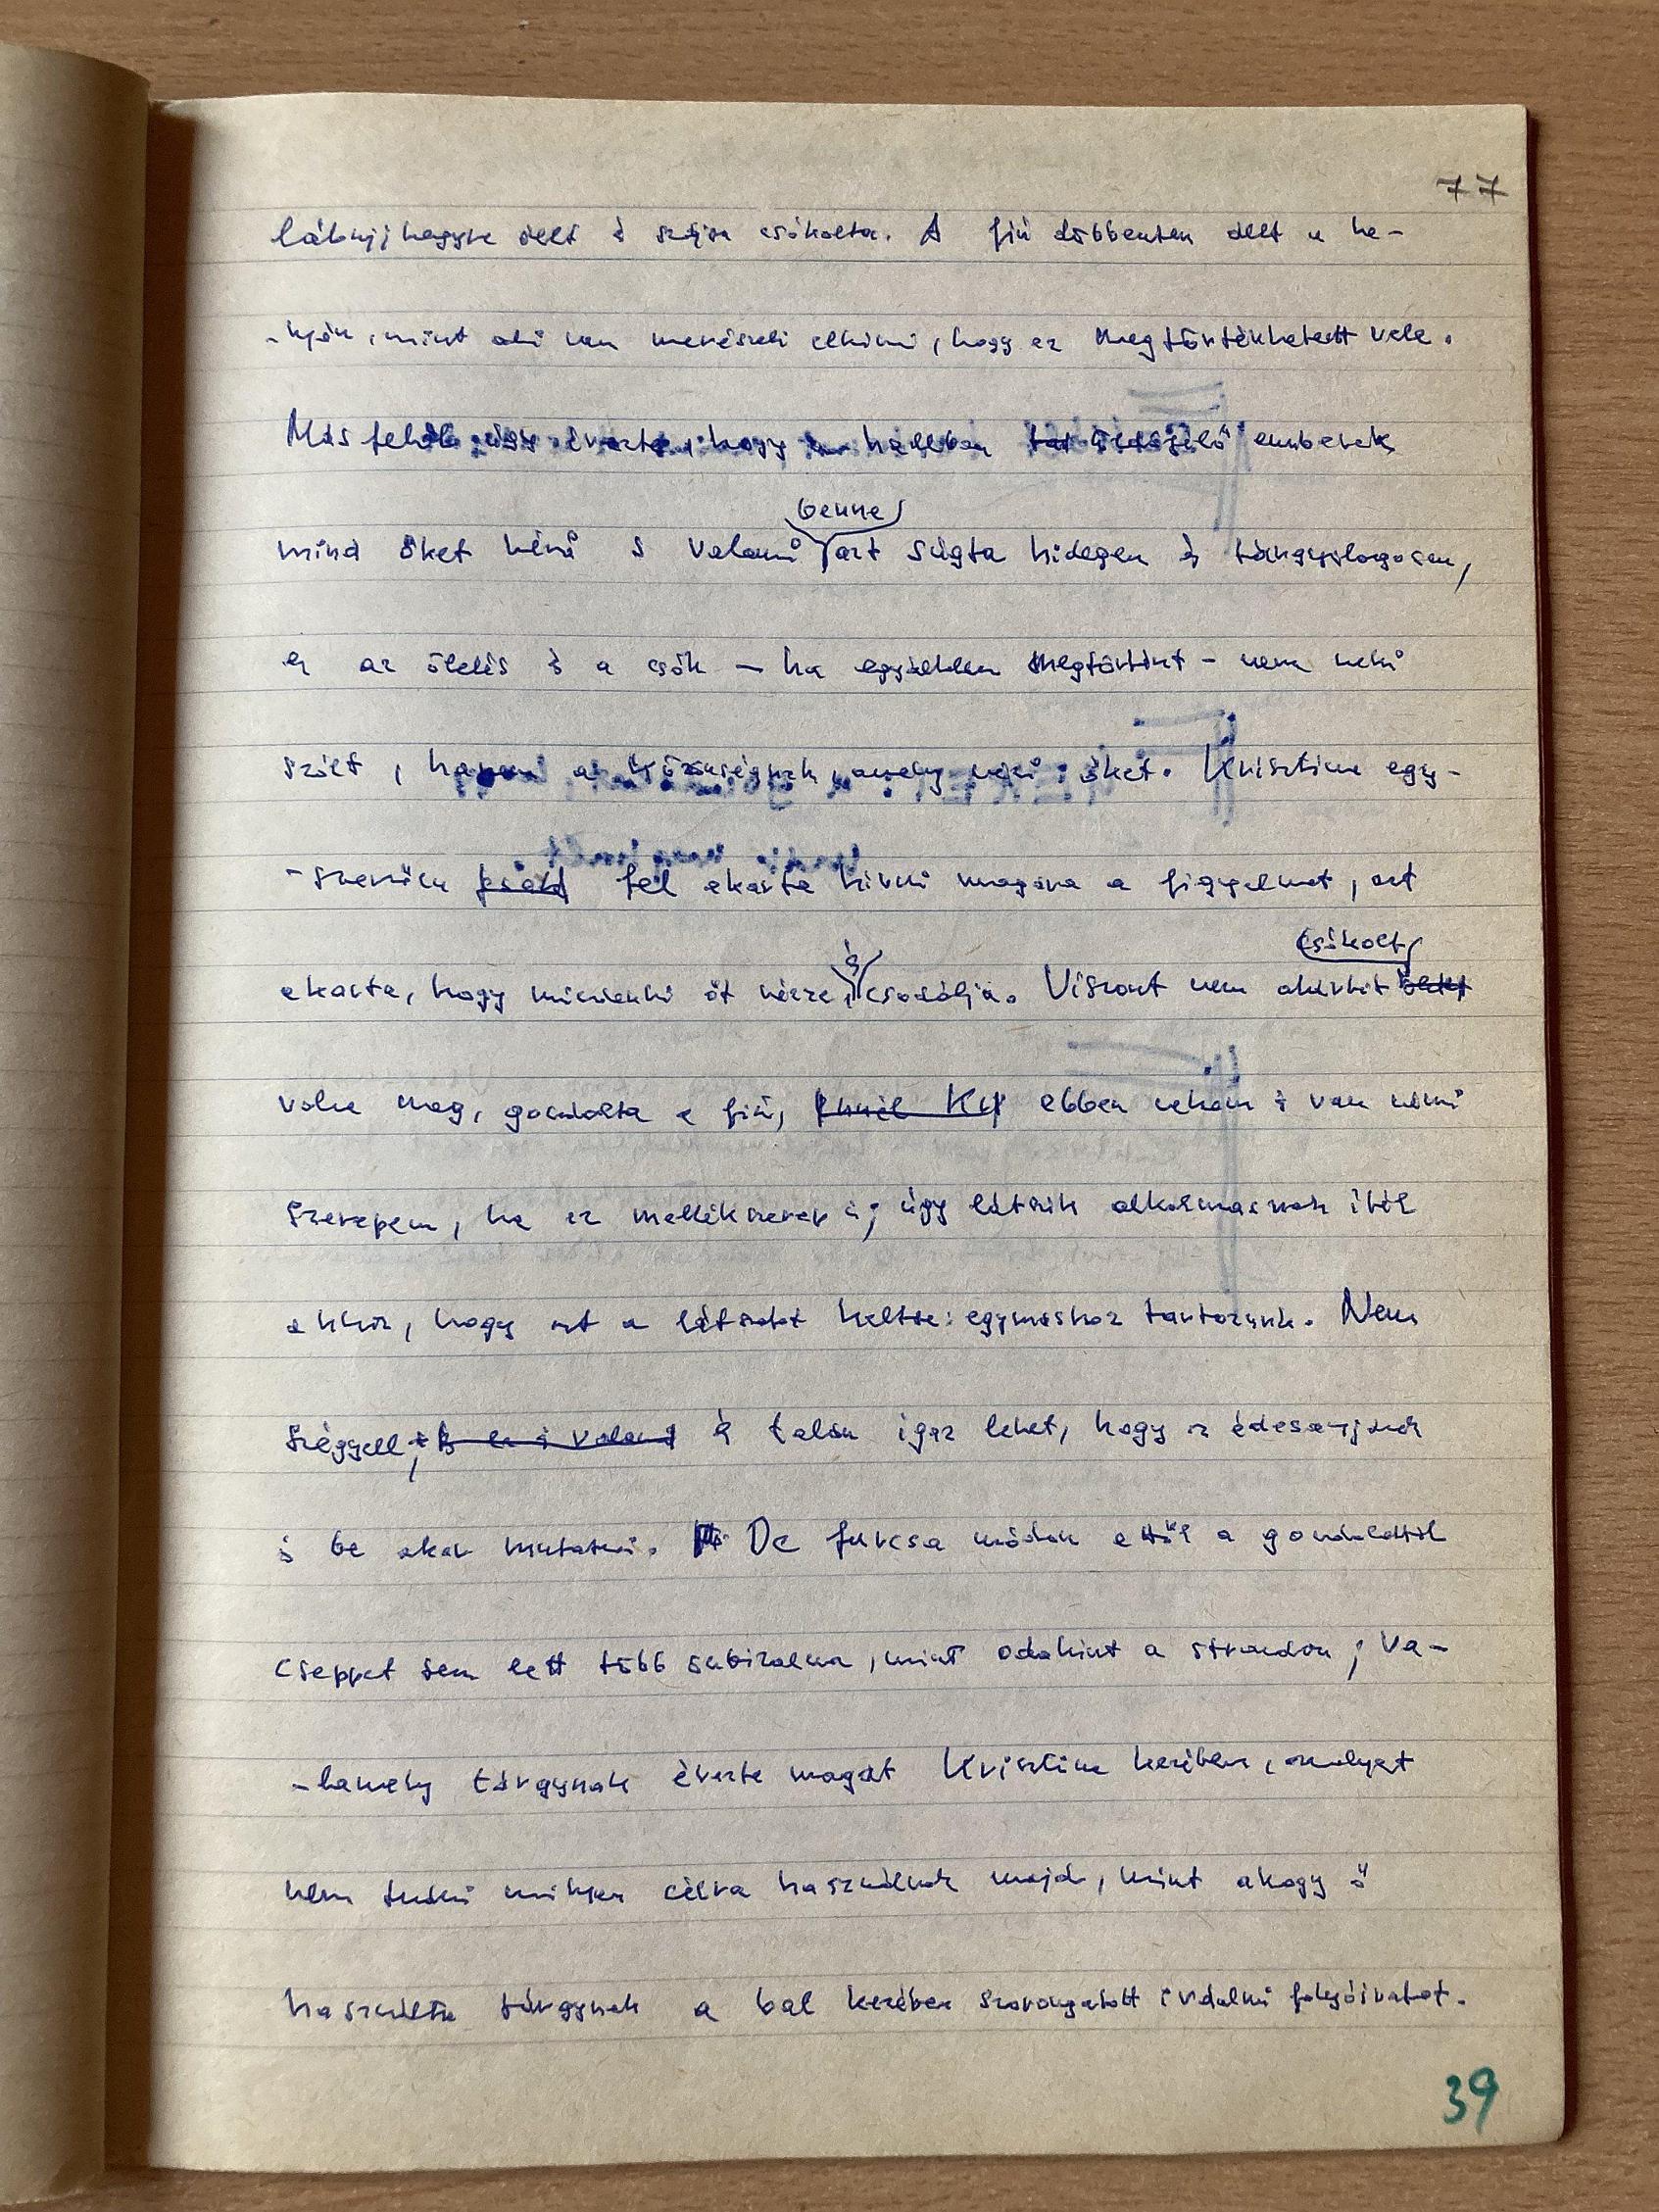 77
lábujjhegyre állt s szájon csókolta. A fiú döbbenten állt a he-
-lyén, mint aki nem merészeli elhinni, hogy ez megtörténhetett vele.
Másfelől úgy érezte, hogy a hallban üldögélő emberek
benne
mind őket nézik s valami azt súgta hidegen és tárgyilagosan,
ez az ölelés és a csók – ha egyáltalán megtörtént – nem neki
szólt, hanem a közönségnek, amely nézi őket. Krisztina egy-
-szerűen fel akarta hívni magára a figyelmet, azt
és csókolt
akarta, hogy mindenki őt nézze, csodálja. Viszont nem akárkit
volna meg, gondolta a fiú, ebben nekem is van némi
szerepem, ha ez mellékszerep is; úgy látszik alkalmasnak ítél
ahhoz, hogy azt a látszatot keltse: egymáshoz tartozunk. Nem
szégyell, és talán igaz lehet, hogy az édesanyjának
is be akar mutatni. De furcsa módon ettől a gondolattól
cseppet sem lett több önbizalma, mint odakint a strandon; va-
-lamely tárgynak érezte magát Krisztina kezében, amelyet
nem tudni milyen célra használnak majd, mint ahogy ő
használta tárgynak a bal kezében szorongatott irodalmi folyóiratot.
39